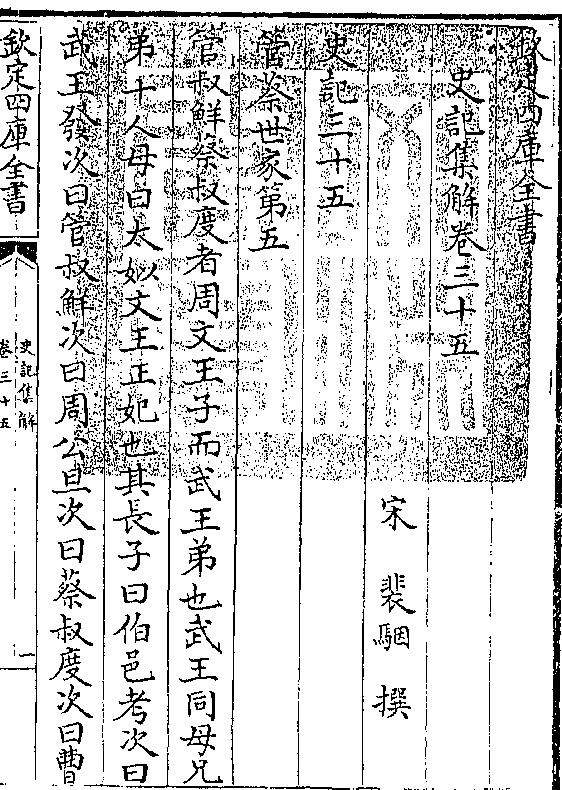 欽定四庫全書
史記集解卷三十五
宋 裴駰 撰
史記三十五
管蔡世家第五
管叔鮮蔡叔度者周文王子而武王弟也武王同母兄
弟十人母曰太姒文王正妃也其長子曰伯邑考次曰
武王發次曰管叔鮮次曰周公旦次曰蔡叔度次曰曹
欽定四庫全書
史記集解
卷三十五
一